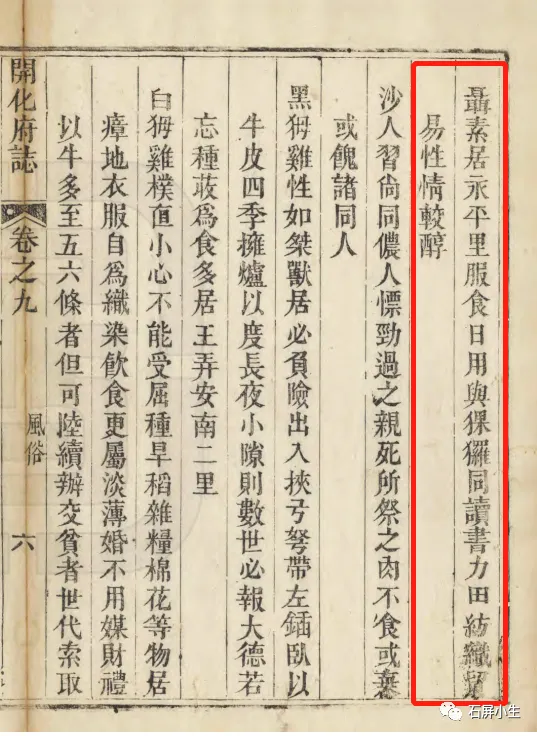 聶素居永平里服食日用與猓玀同讀書力田紡織貿
易性情較醇
沙人習尚同儂人慓勁過之親死所祭之肉不食或棄
或餽諸同人
黑雞性如桀獸居必負險出入挾弓弩帶左鍤臥以
牛皮四季擁爐以度長夜小隙則數世必報大德若
忘種荍爲食多居王弄安南二里
白雞樸直小心不能受屈種旱稻雜糧棉花等物居
瘴地衣服自爲織染飲食更屬淡薄婚不用媒財禮
以牛多至五六條者但可陸續辦交貧者世代索取
開化府誌 卷之九 風俗 六
石屏小生